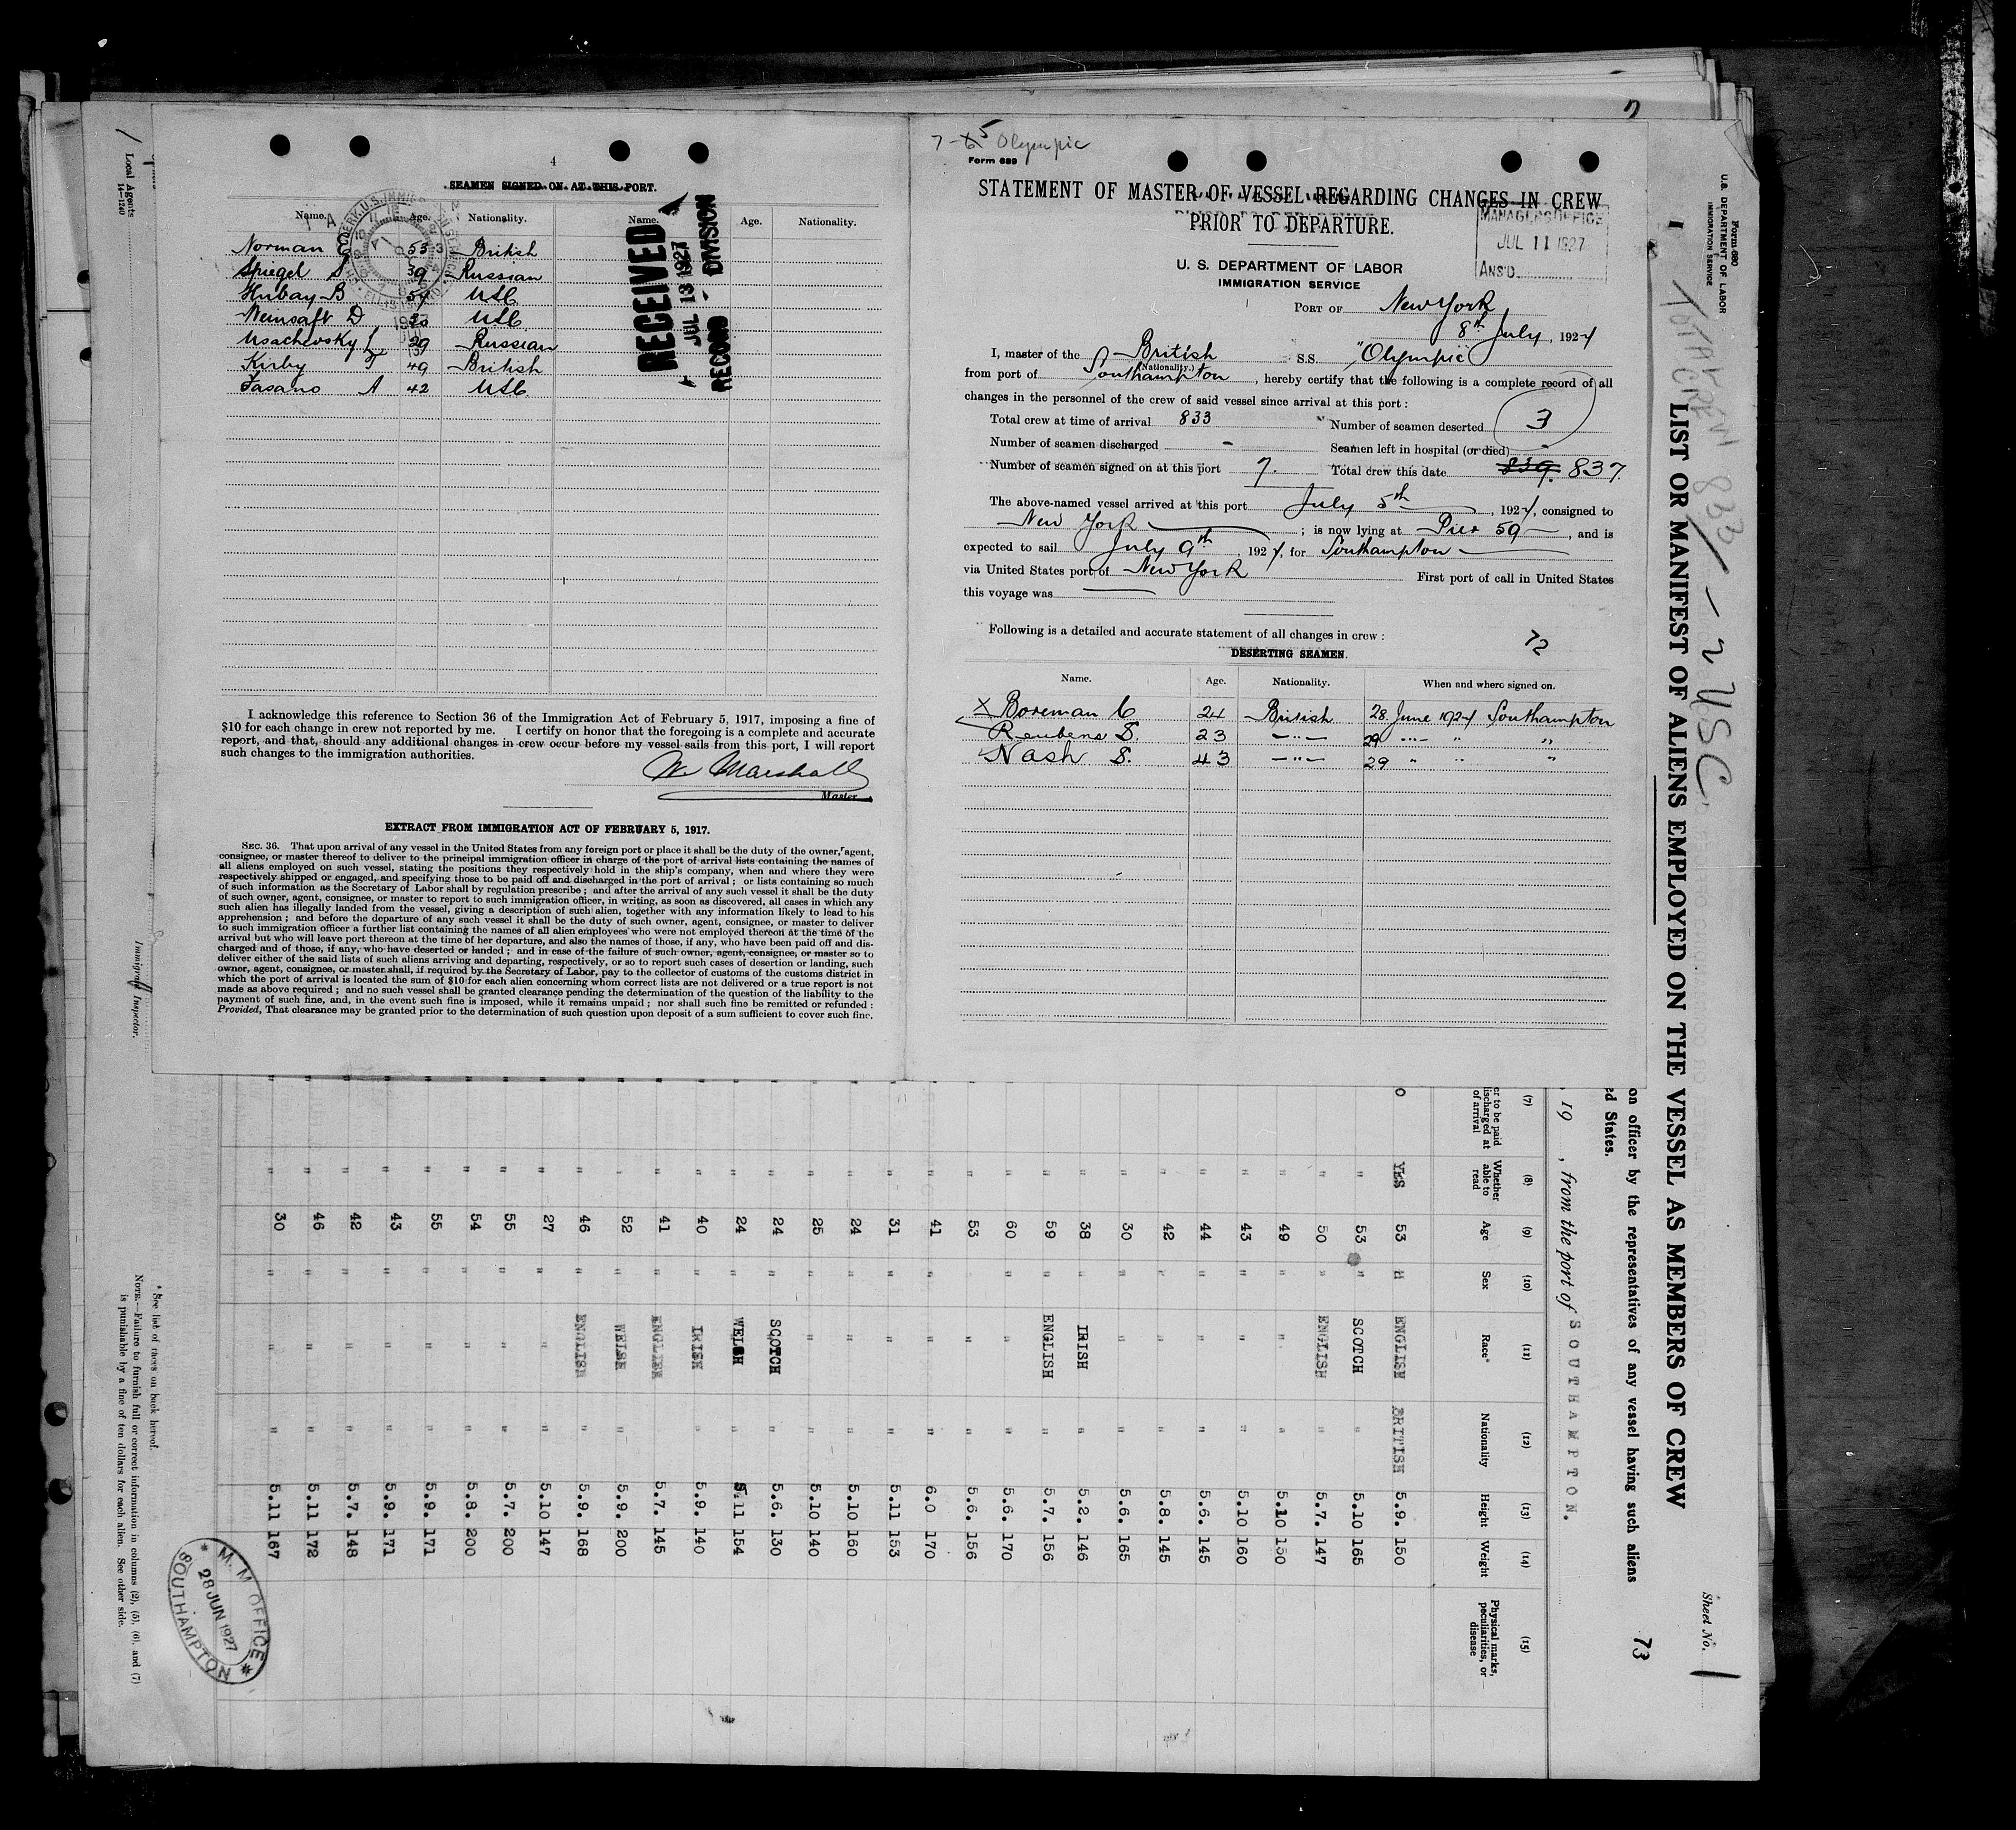 4
SEAMEN SIGNED ON AT THIS PORT.
Name. Age. Nationality. Name. Age. Nationality.
Norman 53 British
Spiegel S 39 Russian
Hubay B 54 USC
Weinsaft D 30 USC
Usachevsky L 29 Russian
Kirby T 49 British
Fasano A 42 USC
RECEIVED
JUL 13 1927
RECORD - DIVISION
I acknowledge this reference to Section 36 of the Immigration Act of February 5, 1917, imposing a fine of
$10 for each change in crew not reported by me. I certify on honor that the foregoing is a complete and accurate
report, and that, should any additional changes in crew occur before my vessel sails from this port, I will report
such changes to the immigration authorities.
W. Marshall
Master
EXTRACT FROM IMMIGRATION ACT OF FEBRUARY 5, 1917.
SEC. 36. That upon arrival of any vessel in the United States from any foreign port or place it shall be the duty of the owner, agent,
consignee, or master thereof to deliver to the principal immigration officer in charge of the port of arrival lists containing the names of
all aliens employed on such vessel, stating the positions they respectively hold in the ship's company, when and where they were
respectively shipped or engaged, and specifying those to be paid off and discharged in the port of arrival; or lists containing so much
of such information as the Secretary of Labor shall by regulation prescribe; and after the arrival of any such vessel it shall be the duty
of such owner, agent, consignee, or master to report to such immigration officer, in writing, as soon as discovered, all cases in which any
such alien has illegally landed from the vessel, giving a description of such alien, together with any information likely to lead to his
apprehension; and before the departure of any such vessel it shall be the duty of such owner, agent, consignee, or master to deliver
to such immigration officer a further list containing the names of all alien employees who were not employed thereon at the time of the
arrival but who will leave port thereon at the time of her departure, and also the names of those, if any, who have been paid off and dis-
charged and of those, if any, who have deserted or landed; and in case of the failure of such owner, agent, consignee, or master so to
deliver either of the said lists of such aliens arriving and departing, respectively, or so to report such cases of desertion or landing, such
owner, agent, consignee, or master shall, if required by the Secretary of Labor, pay to the collector of customs of the customs district in
which the port of arrival is located the sum of $10 for each alien concerning whom correct lists are not delivered or a true report is not
made as above required; and no such vessel shall be granted clearance pending the determination of the question of the liability to the
payment of such fine, and, in the event such fine is imposed, while it remains unpaid; nor shall such fine be remitted or refunded:
Provided, That clearance may be granted prior to the determination of such question upon deposit of a sum sufficient to cover such fine.
7-5 Olympic
Form 689
STATEMENT OF MASTER OF VESSEL REGARDING CHANGES IN CREW
PRIOR TO DEPARTURE.
MANAGERS OFFICE
JUL 11 1927
ANS'D
U. S. DEPARTMENT OF LABOR
IMMIGRATION SERVICE
PORT OF New York
8th July, 1927
I, master of the British S.S. "Olympic"
(Nationality.)
from port of Southampton, hereby certify that the following is a complete record of all
changes in the personnel of the crew of said vessel since arrival at this port:
Total crew at time of arrival 833 Number of seamen deserted 3
Number of seamen discharged - Seamen left in hospital (or died) -
Number of seamen signed on at this port 7. Total crew this date 839. 837.
The above-named vessel arrived at this port July 5th, 1927, consigned to
New York; is now lying at Pier 59, and is
expected to sail July 9th, 1927, for Southampton
via United States port of New York First port of call in United States
this voyage was
Following is a detailed and accurate statement of all changes in crew: 72
DESERTING SEAMEN.
Name. Age. Nationality. When and where signed on.
X Boreman C 24 British 28 June 1927 Southampton
Reubens S. 23 -"- 29 " " "
Nash S. 43 -"- 29 " " "
Form 680
U.S. DEPARTMENT OF LABOR
IMMIGRATION SERVICE
TOTAL CREW 833 - 2 USC
LIST OR MANIFEST OF ALIENS EMPLOYED ON THE VESSEL AS MEMBERS OF CREW
Sheet No. 1
73
on officer by the representatives of any vessel having such aliens
ed States.
, 19 , from the port of SOUTHAMPTON.
(7) (8) (9) (10) (11) (12) (13) (14) (15)
er to be paid discharged at of arrival
Whether able to read
Age
Sex
Race*
Nationality
Height
Weight
Physical marks, peculiarities, or disease
O YES 53 M ENGLISH BRITISH 5.9. 150
" 53 " SCOTCH " 5.10 165
" 50 " ENGLISH " 5.7. 147
" 49 " " " 5.10 150
" 43 " " " 5.10 160
" 44 " " " 5.6. 145
" 42 " " " 5.8. 145
" 30 " " " 5.6. 165
" 38 " IRISH " 5.2. 146
" 59 " ENGLISH " 5.7. 156
" 60 " " " 5.6. 170
" 53 " " " 5.6. 156
" 41 " " " 6.0 170
" 31 " " " 5.11 153
" 24 " " " 5.10 160
" 25 " " " 5.10 140
" 24 " SCOTCH " 5.6. 130
" 24 " WELSH " 5.11 154
" 40 " IRISH " 5.9. 140
" 41 " ENGLISH " 5.7. 145
" 52 " WELSH " 5.9. 200
" 46 " ENGLISH " 5.9. 168
" 27 " " " 5.10 147
" 55 " " " 5.7. 200
" 54 " " " 5.8. 200
" 55 " " " 5.9. 171
" 43 " " " 5.9. 171
" 42 " " " 5.7. 148
" 46 " " " 5.11 172
" 30 " " " 5.11 167
* See list of races on back hereof.
NOTE.—Failure to furnish full or correct information in columns (2), (5), (6), and (7)
is punishable by a fine of ten dollars for each alien. See other side.
Local Agents
14-1240
Immigrant Inspector.
M. M OFFICE
28 JUN 1927
SOUTHAMPTON